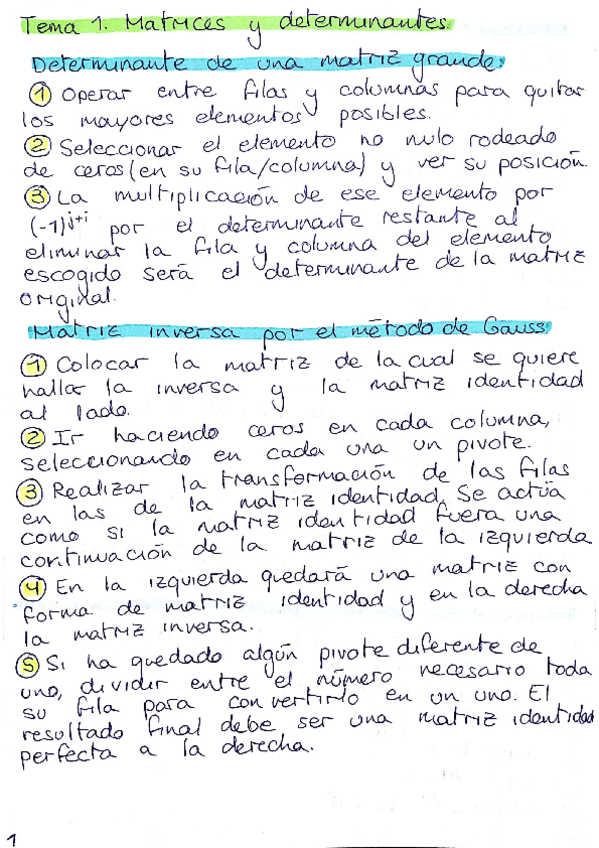 Tema 1. Matrices y determinantes.
Determinante de una matriz grande:
① Operar entre filas y columnas para quitar
los mayores elementos posibles.
② Seleccionar el elemento no nulo rodeado
de ceros (en su fila/columna) y ver su posición.
③ La multiplicación de ese elemento por
(-1)^(j+i) por el determinante restante al
eliminar la fila y columna del elemento
escogido será el determinante de la matriz
original.
Matriz inversa por el método de Gauss:
① Colocar la matriz de la cual se quiere
hallar la inversa y la matriz identidad
al lado.
② Ir haciendo ceros en cada columna,
seleccionando en cada una un pivote.
③ Realizar la transformación de las filas
en las de la matriz identidad. Se actúa
como si la matriz identidad fuera una
continuación de la matriz de la izquierda
④ En la izquierda quedará una matriz con
forma de matriz identidad y en la derecha
la matriz inversa.
⑤ Si ha quedado algún pivote diferente de
uno, dividir entre el número necesario toda
su fila para convertirlo en un uno. El
resultado final debe ser una matriz identidad
perfecta a la derecha.
1